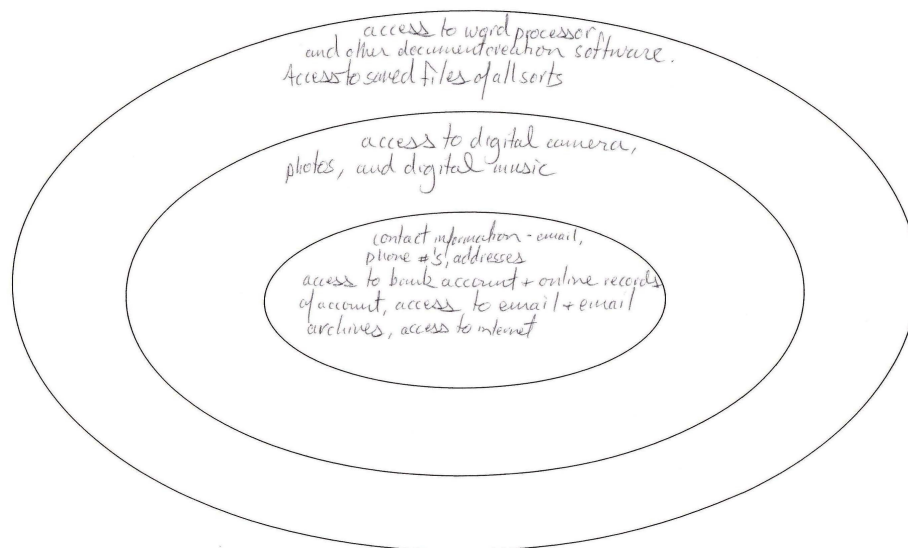 access to word processor
and other document creation software.
Access to saved files of all sorts
access to digital camera,
photos, and digital music
contact information - email,
phone #'s, addresses
access to bank account + online records
of account, access to email + email
archives, access to internet